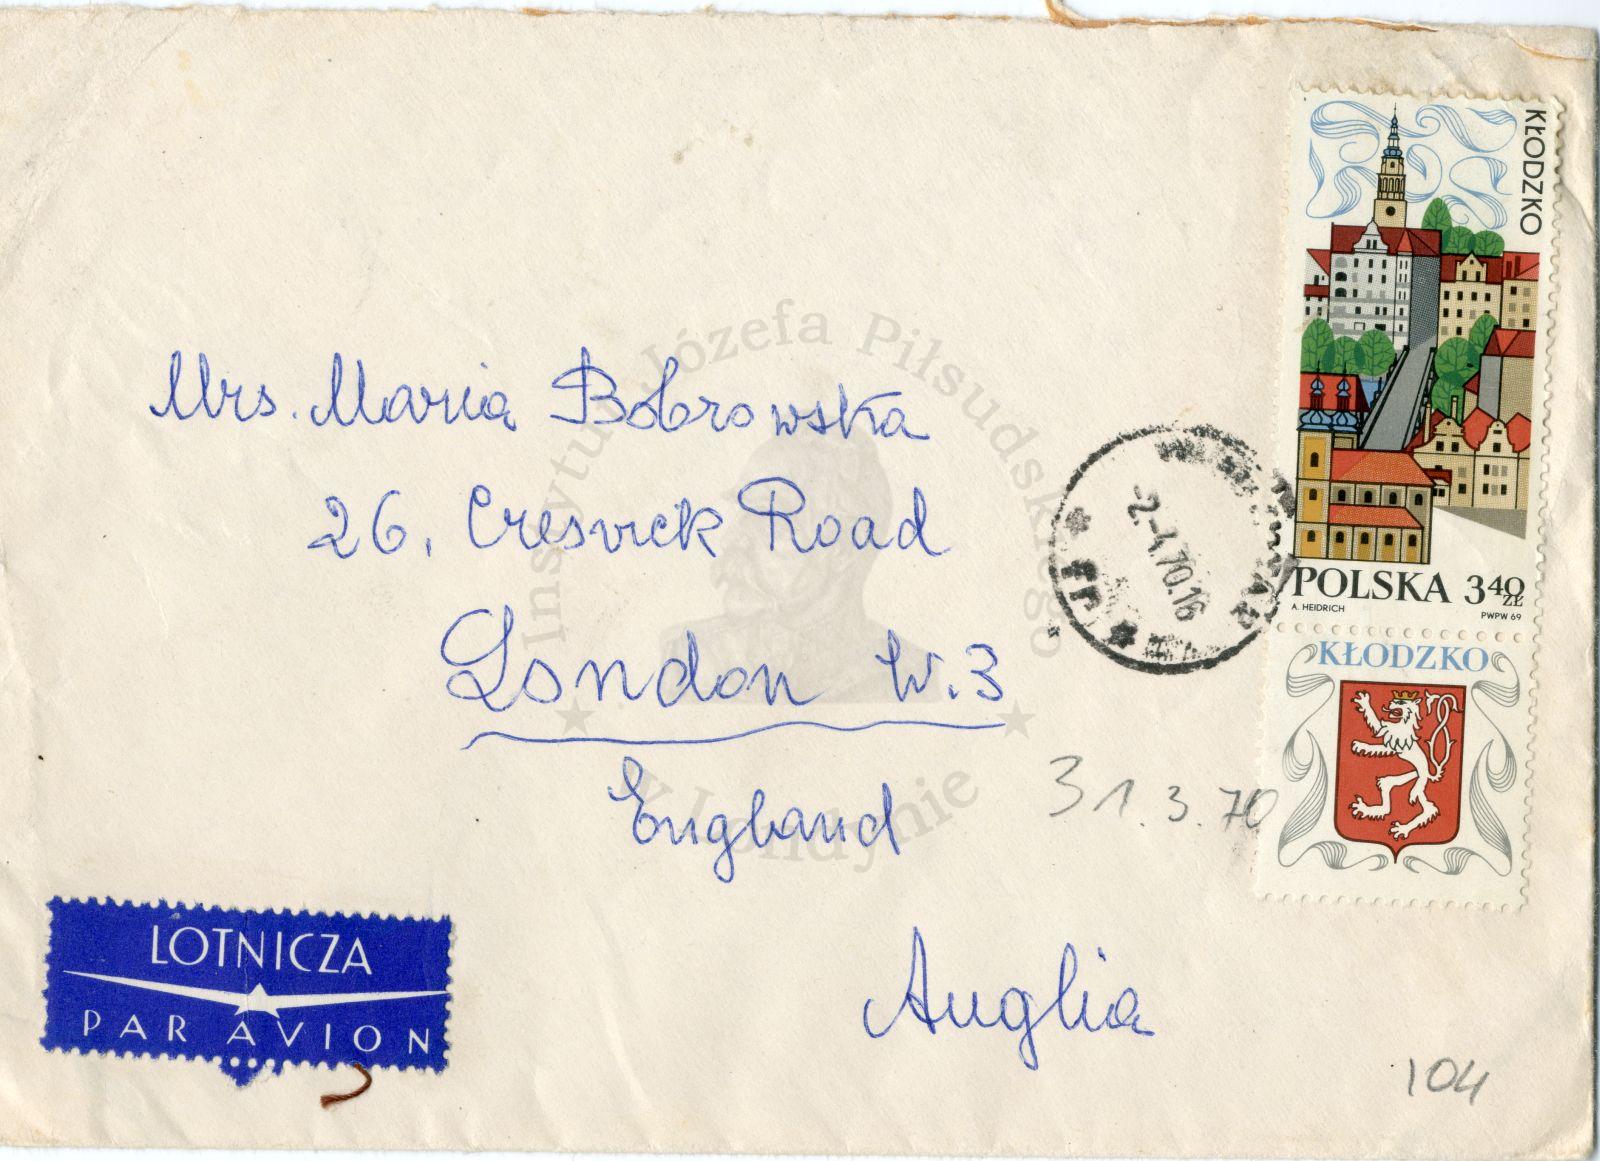 KŁODZKO
POLSKA 3 40 ZŁ
A. HEIDRICH
PWPW 69
KŁODZKO
-2.-4.70.16
Mrs. Maria Bobrowska
26, Cresvick Road
London W.3
England
Anglia
31.3.70
104
LOTNICZA
PAR AVION
Instytut Józefa Piłsudskiego
w Londynie